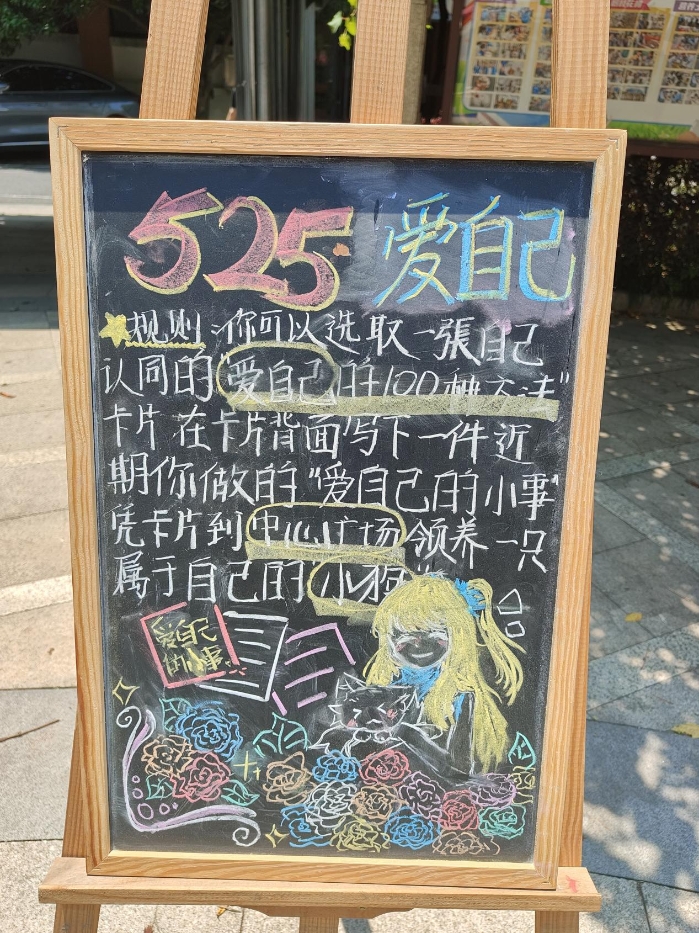 525 爱自己
规则:你可以选取一張自己
认同的"爱自己的100种方法"
卡片在卡片背面写下一件近
期你做的"爱自己的小事"
凭卡片到中心广场领养一只
属于自己的"小狗"
爱自己
的小事